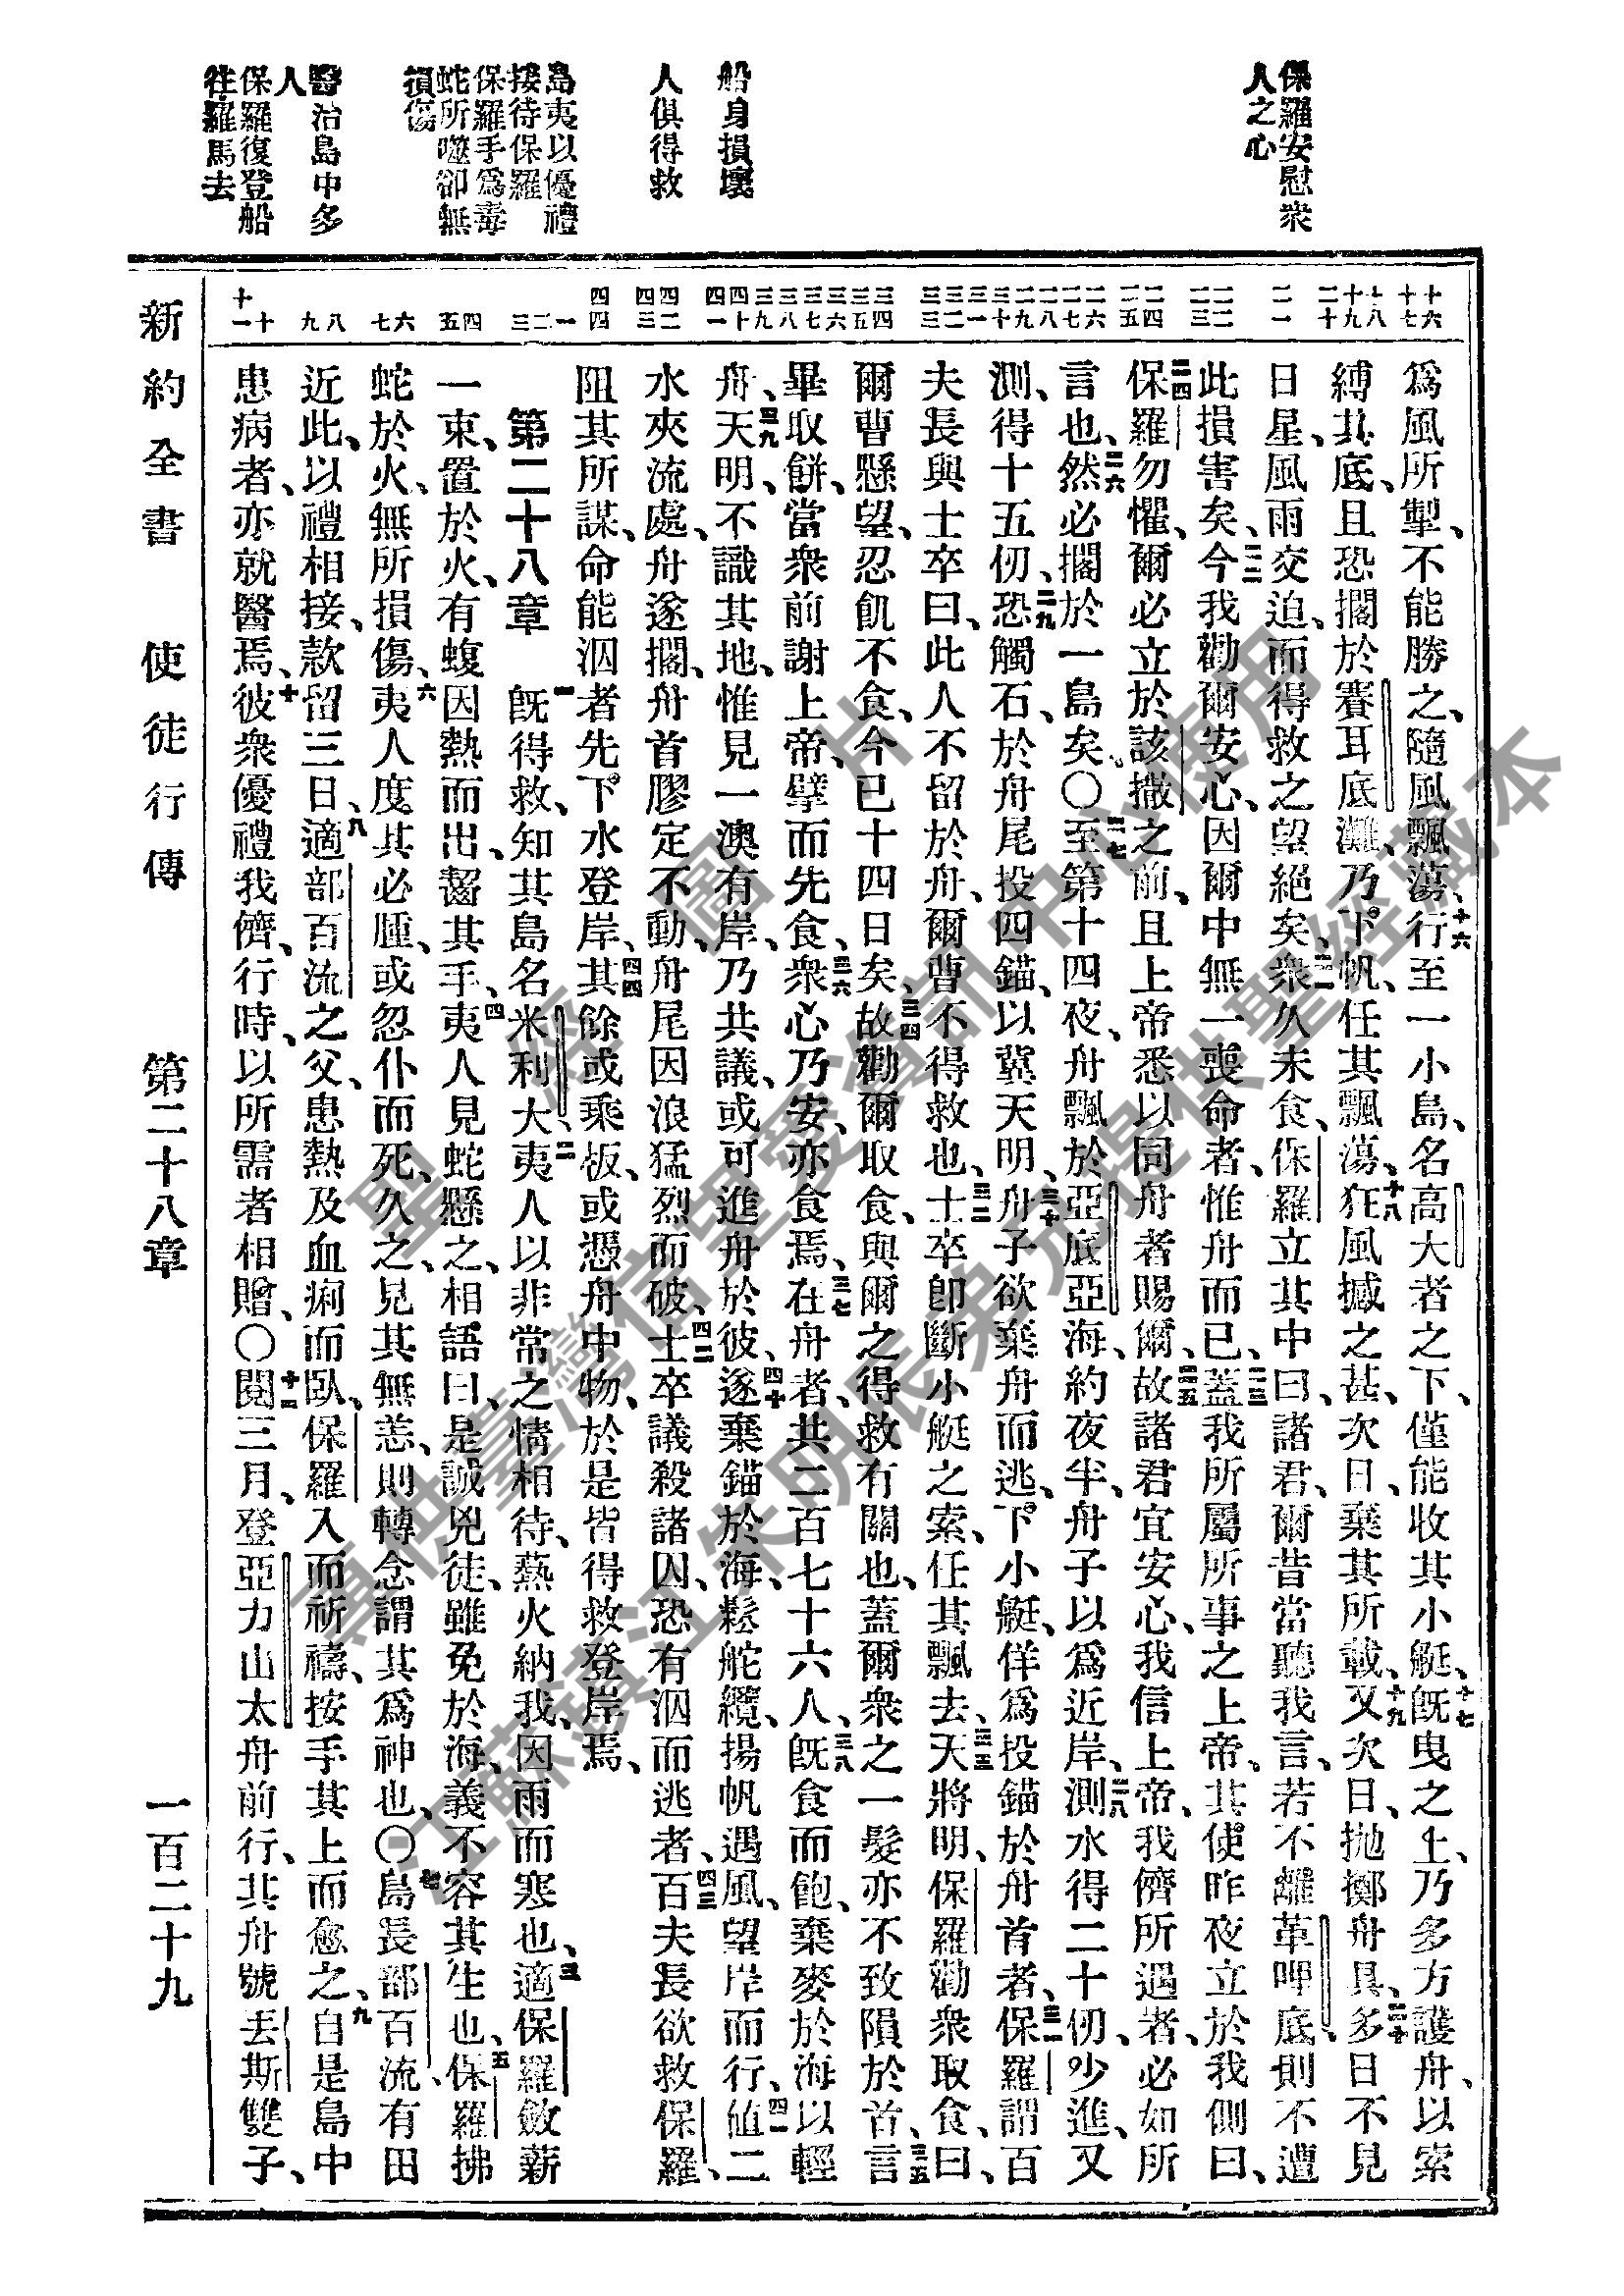 保羅安慰衆
人之心
船身損壞
人俱得救
島夷以優禮
接待保羅
保羅手爲毒
蛇所噬卻無
損傷
醫治島中多
人
保羅復登船
往羅馬去
十六
十七
十八
十九
二十
二一
二二
二三
二四
二五
二六
二七
二八
二九
三十
三一
三二
三三
三四
三五
三六
三七
三八
三九
四十
四一
四二
四三
四四
一
二
三
四
五
六
七
八
九
十
十一
爲風所掣、不能勝之、隨風飄蕩、十六行至一小島、名高大者之下、僅能收其小艇、十七旣曳之上、乃多方護舟、以索
縛其底、且恐擱於賽耳底灘、乃下帆、任其飄蕩、十八狂風撼之甚、次日、棄其所載、十九又次日、拋擲舟具、二十多日不見
日星、風雨交迫、而得救之望絕矣、二一衆久未食、保羅立其中曰、諸君、爾昔當聽我言、若不離革哩底、則不遭
此損害矣、二二今我勸爾安心、因爾中無一喪命者、惟舟而已、二三蓋我所屬所事之上帝、其使昨夜立於我側曰、
二四保羅勿懼、爾必立於該撒之前、且上帝悉以同舟者賜爾、二五故諸君宜安心、我信上帝、我儕所遇者、必如所
言也、二六然必擱於一島矣、〇二七至第十四夜、舟飄於亞底亞海、約夜半、舟子以爲近岸、二八測水得二十仞、少進、又
測、得十五仞、二九恐觸石、於舟尾投四錨、以冀天明、三十舟子欲棄舟而逃、下小艇、佯爲投錨於舟首者、三一保羅謂百
夫長與士卒曰、此人不留於舟、爾曹不得救也、三二士卒卽斷小艇之索、任其飄去、三三天將明、保羅勸衆取食、曰、
爾曹懸望、忍飢不食、今已十四日矣、三四故勸爾取食、與爾之得救有關也、蓋爾衆之一髮亦不致隕於首、三五言
畢取餅、當衆前謝上帝、擘而先食、三六衆心乃安、亦食焉、三七在舟者、共二百七十六人、三八旣食而飽、棄麥於海以輕
舟、三九天明、不識其地、惟見一澳有岸、乃共議、或可進舟於彼、四十遂棄錨於海、鬆舵纜、揚帆遇風、望岸而行、四一值二
水夾流處、舟遂擱、舟首膠定不動、舟尾因浪猛烈而破、四二士卒議殺諸囚、恐有泅而逃者、四三百夫長欲救保羅、
阻其所謀、命能泅者先下水登岸、四四其餘或乘板、或憑舟中物、於是皆得救登岸焉、
第二十八章 一旣得救、知其島名米利大、二夷人以非常之情相待、爇火納我、因雨而寒也、三適保羅斂薪
一束、置於火、有蝮因熱而出、齧其手、四夷人見蛇懸之、相語曰、是誠兇徒、雖免於海、義不容其生也、五保羅拂
蛇於火、無所損傷、六夷人度其必腫、或忽仆而死、久之、見其無恙、則轉念謂其爲神也、〇七島長部百流、有田
近此、以禮相接、款留三日、八適部百流之父、患熱及血痢而臥、保羅入而祈禱、按手其上而愈之、九自是島中
患病者、亦就醫焉、十彼衆優禮我儕、行時、以所需者相贈、〇十一閱三月、登亞力山太舟前行、其舟號丟斯雙子、
新約全書 使徒行傳 第二十八章 一百二十九
聖經圖片
專供臺灣信望愛資訊中心使用
江蘇鎮江朱明辰弟兄提供聖經藏本